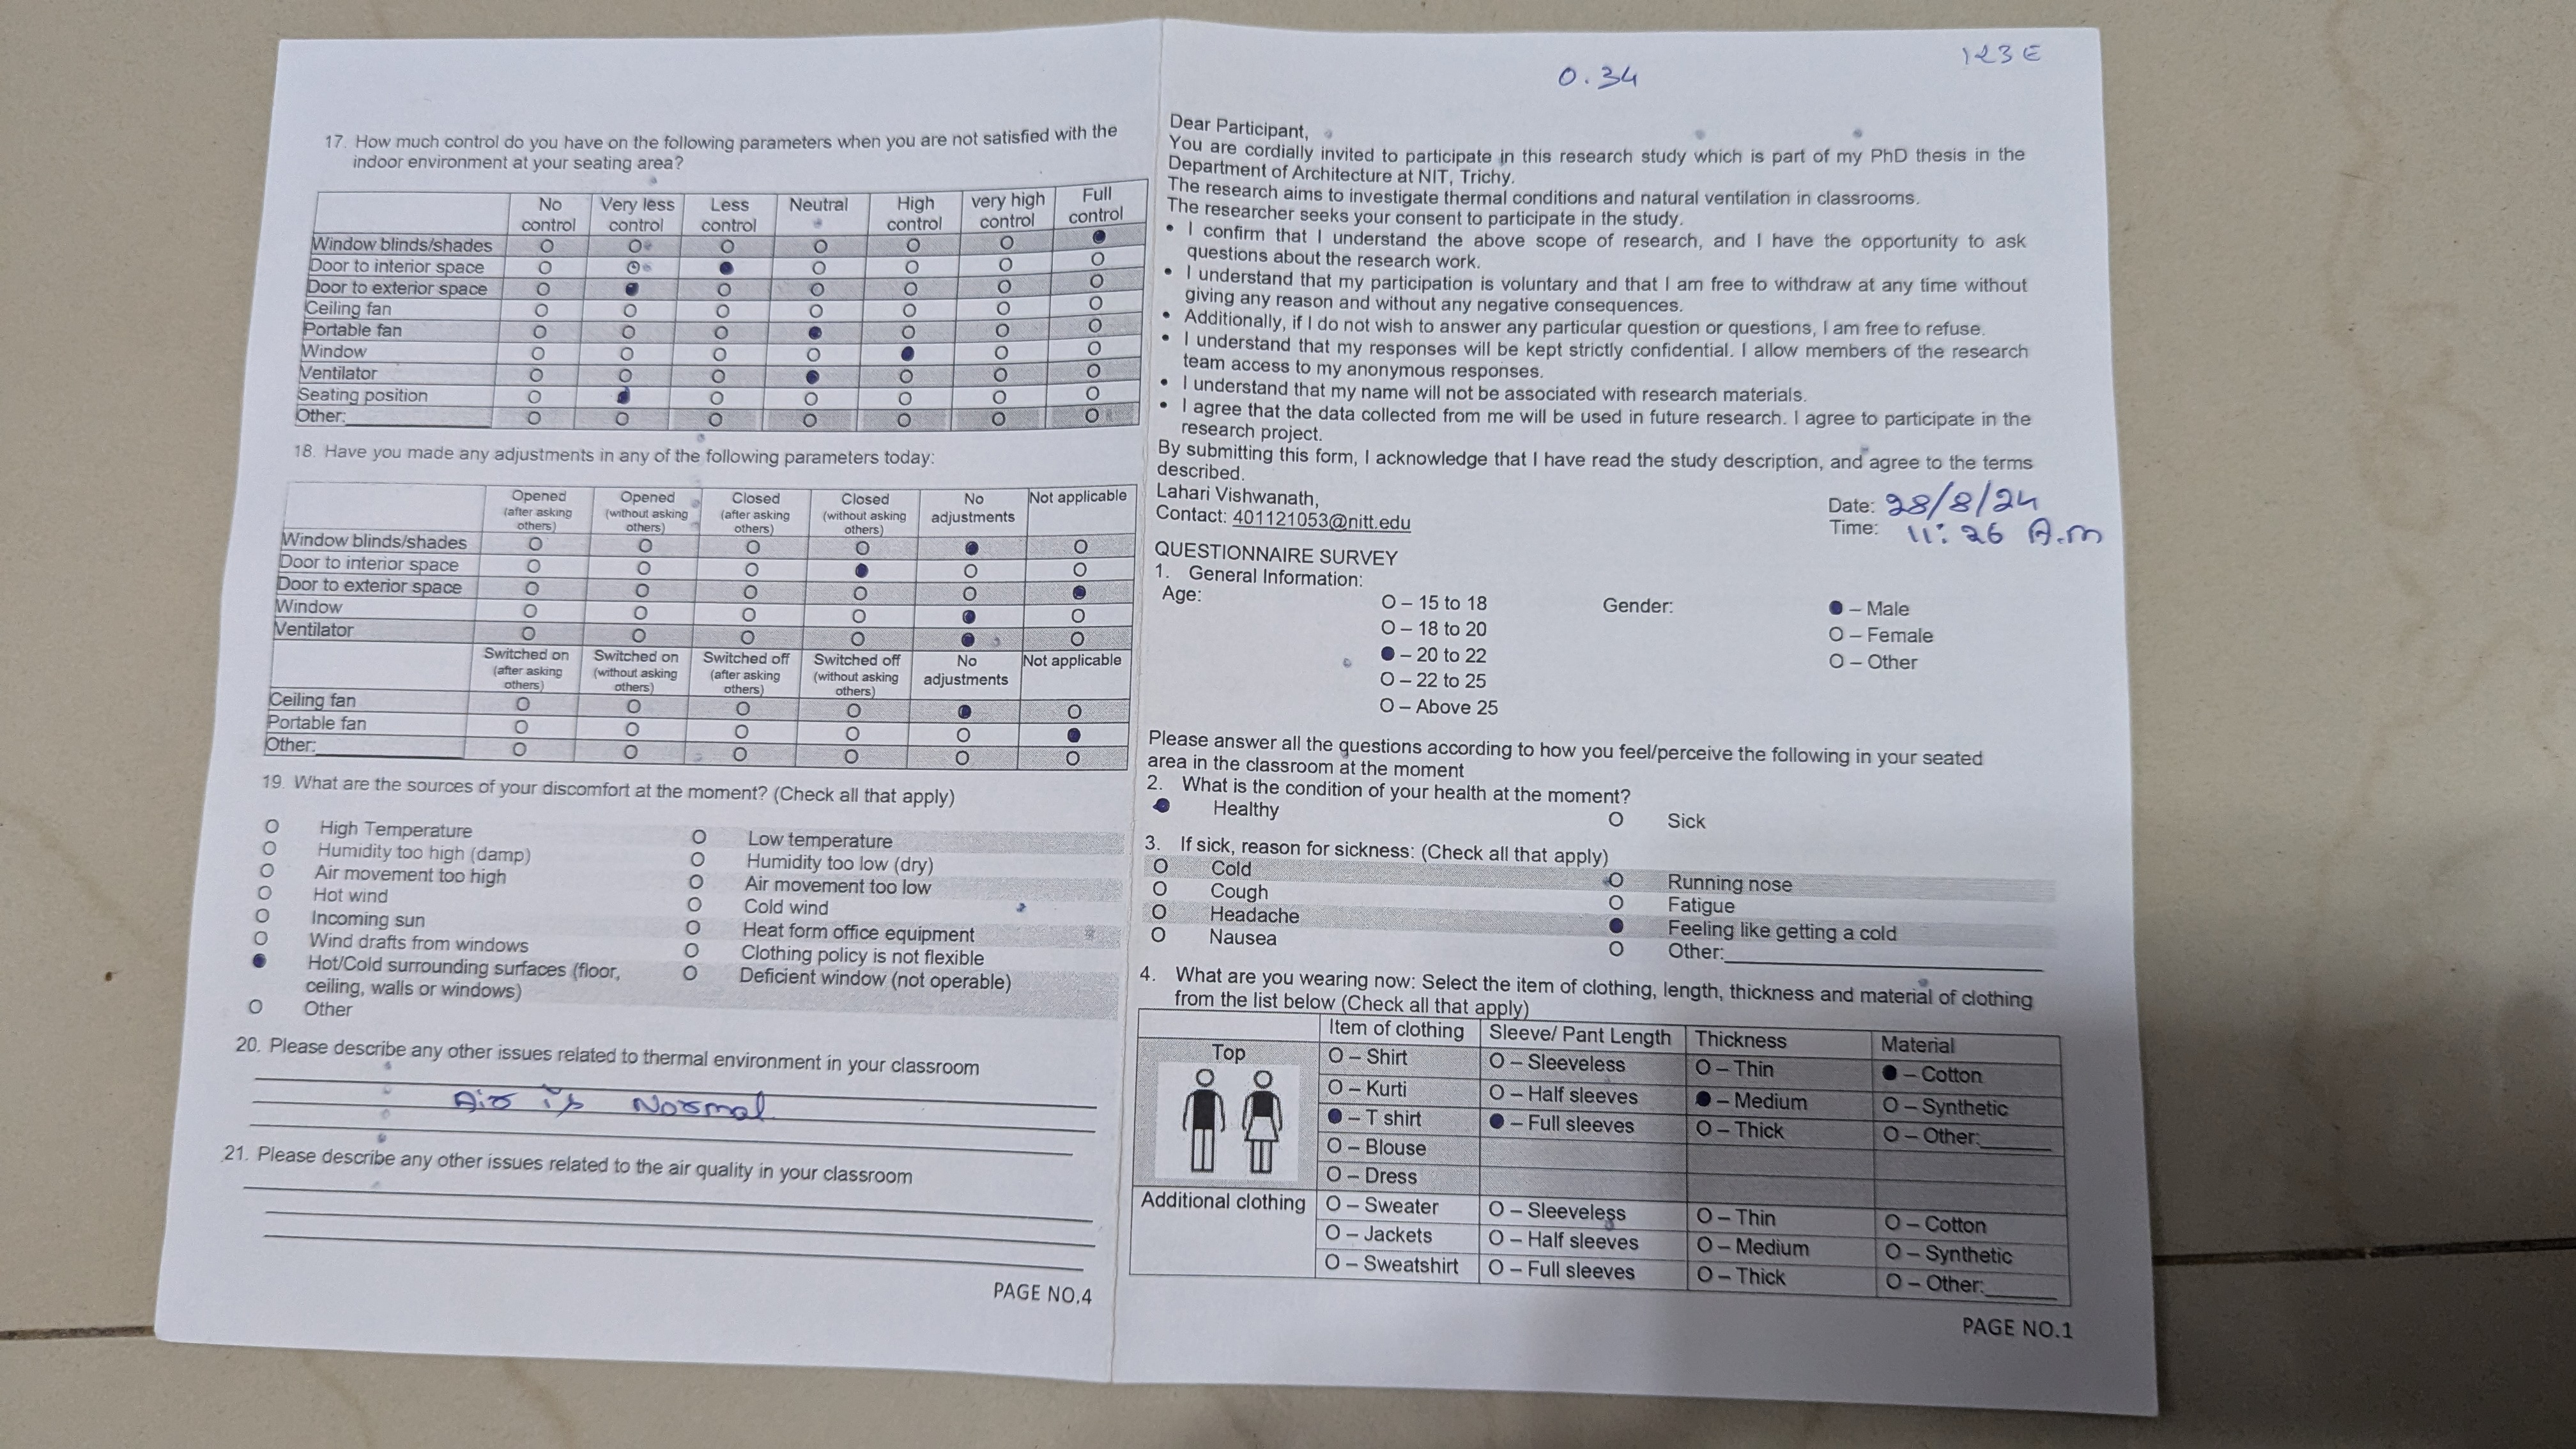 17. How much control do you have on the following parameters when you are not satisfied with the
indoor environment at your seating area?
No control Very less control Less control Neutral High control very high control Full control
Window blinds/shades O O O O O O ●
Door to interior space O O ● O O O O
Door to exterior space O ● O O O O O
Ceiling fan O O O O O O O
Portable fan O O O ● O O O
Window O O O O ● O O
Ventilator O O O ● O O O
Seating position O ● O O O O O
Other:________ O O O O O O O
18. Have you made any adjustments in any of the following parameters today:
Opened (after asking others) Opened (without asking others) Closed (after asking others) Closed (without asking others) No adjustments Not applicable
Window blinds/shades O O O O ● O
Door to interior space O O O ● O O
Door to exterior space O O O O O ●
Window O O O O ● O
Ventilator O O O O ● O
Switched on (after asking others) Switched on (without asking others) Switched off (after asking others) Switched off (without asking others) No adjustments Not applicable
Ceiling fan O O O O ● O
Portable fan O O O O O ●
Other:________ O O O O O O
19. What are the sources of your discomfort at the moment? (Check all that apply)
O High Temperature O Low temperature
O Humidity too high (damp) O Humidity too low (dry)
O Air movement too high O Air movement too low
O Hot wind O Cold wind
O Incoming sun O Heat form office equipment
O Wind drafts from windows O Clothing policy is not flexible
● Hot/Cold surrounding surfaces (floor, O Deficient window (not operable)
ceiling, walls or windows)
O Other
20. Please describe any other issues related to thermal environment in your classroom
Air is Normal
21. Please describe any other issues related to the air quality in your classroom
PAGE NO.4
0.34
123 E
Dear Participant,
You are cordially invited to participate in this research study which is part of my PhD thesis in the
Department of Architecture at NIT, Trichy.
The research aims to investigate thermal conditions and natural ventilation in classrooms.
The researcher seeks your consent to participate in the study.
• I confirm that I understand the above scope of research, and I have the opportunity to ask
questions about the research work.
• I understand that my participation is voluntary and that I am free to withdraw at any time without
giving any reason and without any negative consequences.
• Additionally, if I do not wish to answer any particular question or questions, I am free to refuse.
• I understand that my responses will be kept strictly confidential. I allow members of the research
team access to my anonymous responses.
• I understand that my name will not be associated with research materials.
• I agree that the data collected from me will be used in future research. I agree to participate in the
research project.
By submitting this form, I acknowledge that I have read the study description, and agree to the terms
described.
Lahari Vishwanath,
Contact: 401121053@nitt.edu
Date: 28/8/24
Time: 11:26 A.m
QUESTIONNAIRE SURVEY
1. General Information:
Age: O – 15 to 18 Gender: ● – Male
O – 18 to 20 O – Female
● – 20 to 22 O – Other
O – 22 to 25
O – Above 25
Please answer all the questions according to how you feel/perceive the following in your seated
area in the classroom at the moment
2. What is the condition of your health at the moment?
● Healthy O Sick
3. If sick, reason for sickness: (Check all that apply)
O Cold O Running nose
O Cough O Fatigue
O Headache ● Feeling like getting a cold
O Nausea O Other:________
4. What are you wearing now: Select the item of clothing, length, thickness and material of clothing
from the list below (Check all that apply)
Item of clothing Sleeve/ Pant Length Thickness Material
Top O – Shirt O – Sleeveless O – Thin ● – Cotton
O – Kurti O – Half sleeves ● – Medium O – Synthetic
● – T shirt ● – Full sleeves O – Thick O – Other:______
O – Blouse
O – Dress
Additional clothing O – Sweater O – Sleeveless O – Thin O – Cotton
O – Jackets O – Half sleeves O – Medium O – Synthetic
O – Sweatshirt O – Full sleeves O – Thick O – Other:______
PAGE NO.1